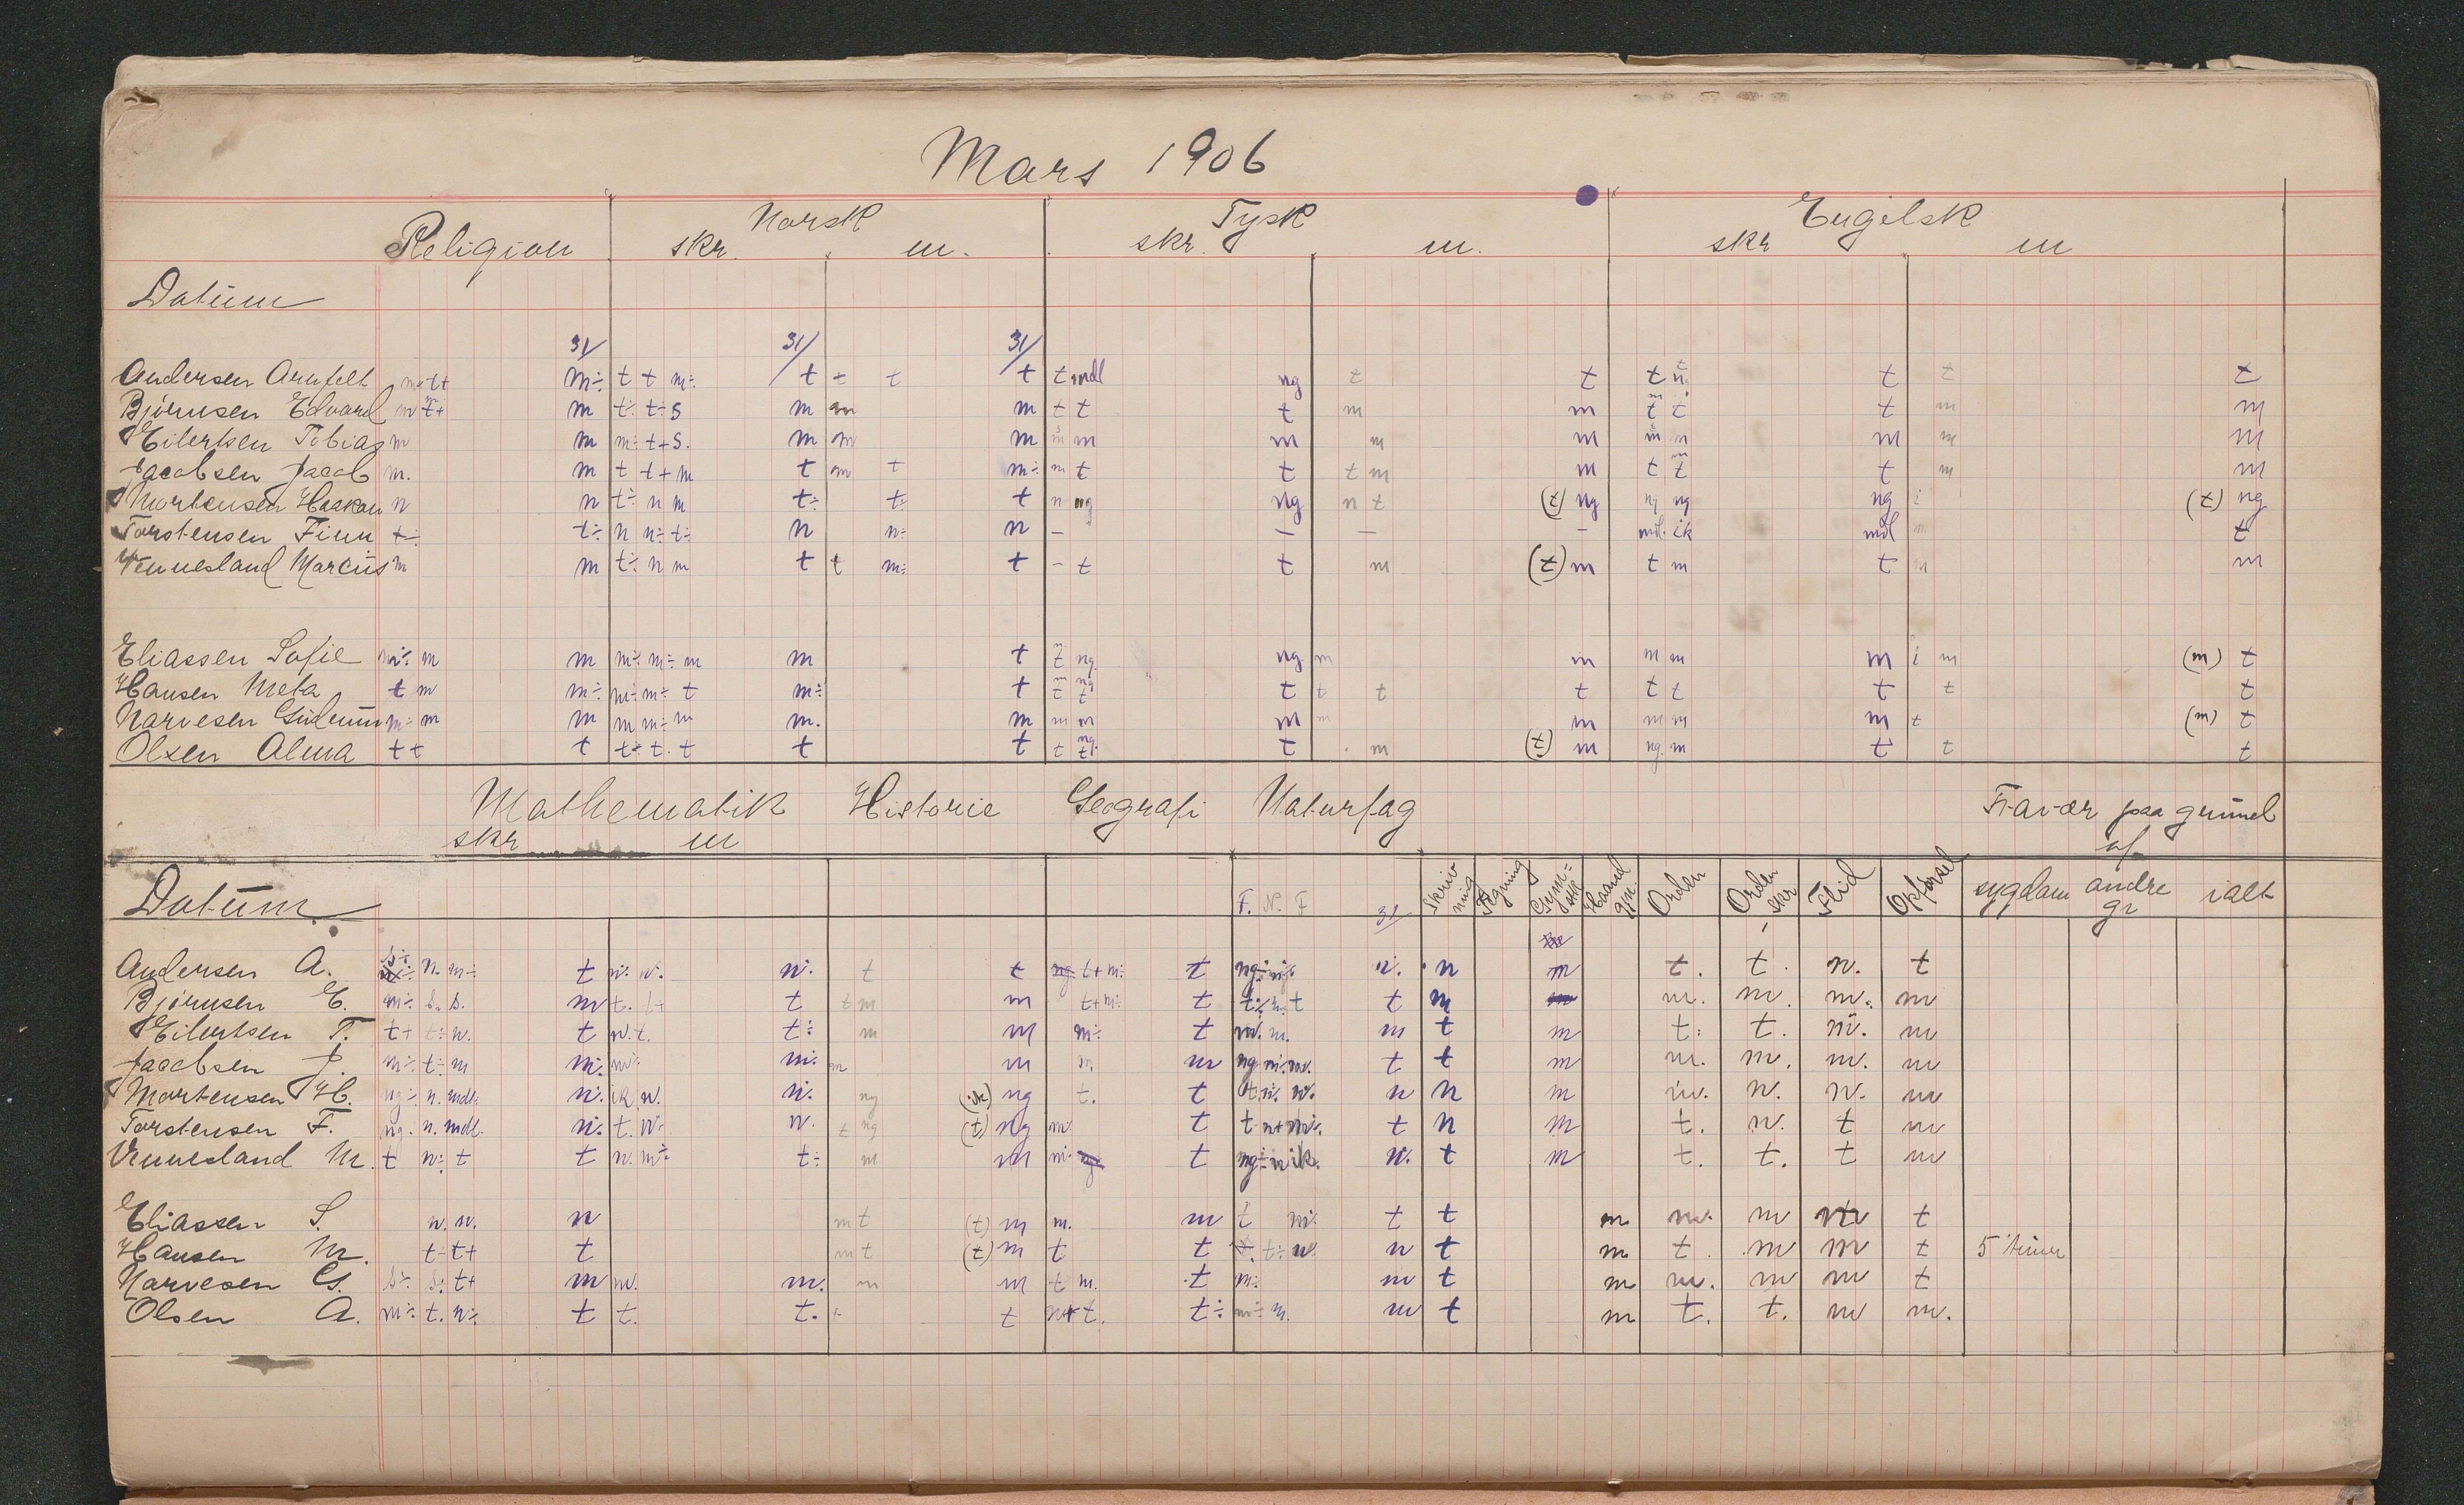 Mars 1906
Religion Norsk Tysk Engelsk
skr. m. skr. m. skr m
Datum
31/ 31/ 31/
Andersen Arnfelt m÷ t t m÷ t t t t t mdl ng t t t t t t
Bjørnsen Edvard m t÷ t÷s m m m t t t m m t t t m m
Eilertsen Tobias m m m÷ t+s. m m m m m m m m m m m
Jacobsen Jacob m. m t t+m t m t m÷ m t t t m m t t t m m
Mortensen Haakon n n t÷ n m t÷ t÷ t n ng ng n t (t) ng ng ng ng i (t) ng
Torstensen Finn t÷ t÷ n n÷ t÷ n n÷ n – – – – mdl. ik mdl m t
Vennesland Marcus m m t÷ n m t t m÷ t – t t m (t) m t m t m m
Eliassen Sofie m÷ m m m÷ m÷ m m t t ng. ng m m m m m i m (m) t
Hansen Meta t m m÷ m÷ m÷ t m÷ t t t t t t t t t t t t
Narvesen Gudrun m÷ m m m m÷ m m. m m m m m m m m m t (m) t
Olsen Alma t t t t÷ t. t t t t t t m (t) m ng. m t t t
Mathematik Historie Geografi Naturfag Fravær paa grund
skr m af
Datum F. N. F 31/ Skrivning Tegning Gymnastik Haand gjn. Orden Orden skr Flid Opførsel sygdom andre gr ialt
Andersen A. n. m÷ t n. t t t+ m÷ t n. n m t. t. n. t
Bjørnsen E. m÷ s. s. m t. t+ t t m m t+ m÷ t t÷ n÷ t t m m. m. m. m
Eilertsen T. t+ t÷ n. t n. t. t÷ m m m÷ t m t m t: t. m. m
Jacobsen J. m÷ t÷ m m. m÷ m m m m t t m m. m. m. m
Mortensen H. ng÷ n. mdl. n÷ ik n. n. ng (ik) ng t. t n n m m. n. n. m
Torstensen F. ng. n. mdl. n÷ t. n÷ n. t ng (t) ng m÷ t t n m t. n. t m
Vennesland M. t n÷ t t n. m÷ t÷ m m t n. t m t. t. t m
Eliassen S. n. n. n m t (t) m m. m t m÷ t t m m. m m t
Hansen M. t÷ t+ t m t (t) m t t t÷ n t m t. m m t 5 timer
Narvesen G. s÷ s÷ t+ m m. m. m m t m. t m÷ m t m m. m m t
Olsen A. m÷ t. n÷ t t. t. t t t. t÷ m÷ m. m t m t. t. m m.